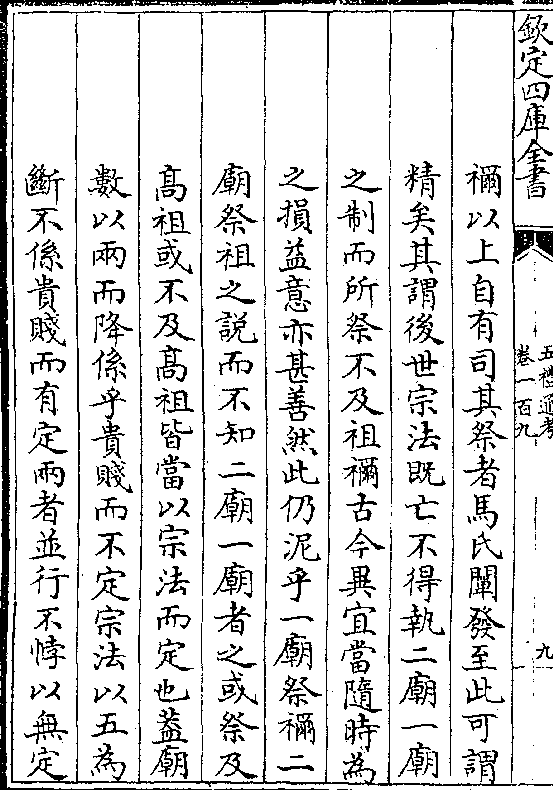 欽定四庫全書
五禮通考
卷一百九
九
禰以上自有司其祭者馬氏闡發至此可謂
精矣其謂後世宗法既亡不得執二廟一廟
之制而所祭不及祖禰古今異宜當隨時為
之損益意亦甚善然此仍泥乎一廟祭禰二
廟祭祖之説而不知二廟一廟者之或祭及
髙祖或不及髙祖皆當以宗法而定也葢廟
數以兩而降係乎貴賤而不定宗法以五為
斷不係貴賤而有定兩者並行不悖以無定